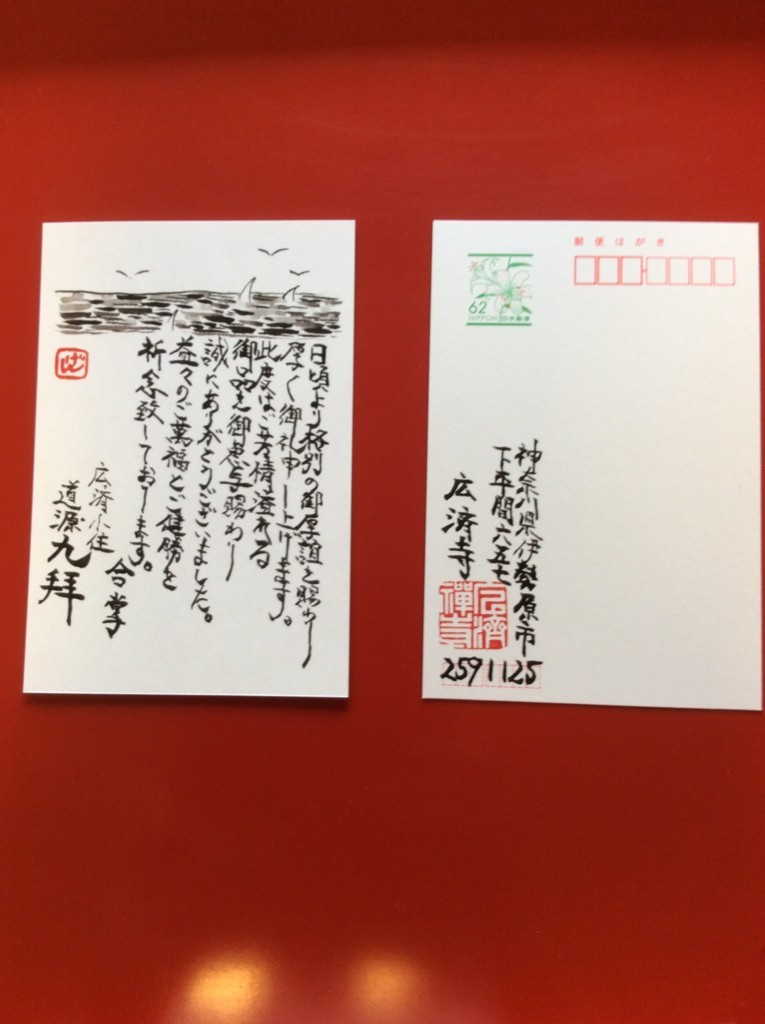 日頃より格別の御厚誼を賜わり
厚く御神し上げます。
此度はご芳情溢れる
御品を御恵与賜わり
誠にありがとうございました。
益々のご萬福とご健勝を
祈念致しております。
合掌
広済小住
道源九拝
郵便はがき
62
NIPPON 日本郵便
神奈川県伊勢原市
下平間六五七
広済寺
広濟禅寺
2591125